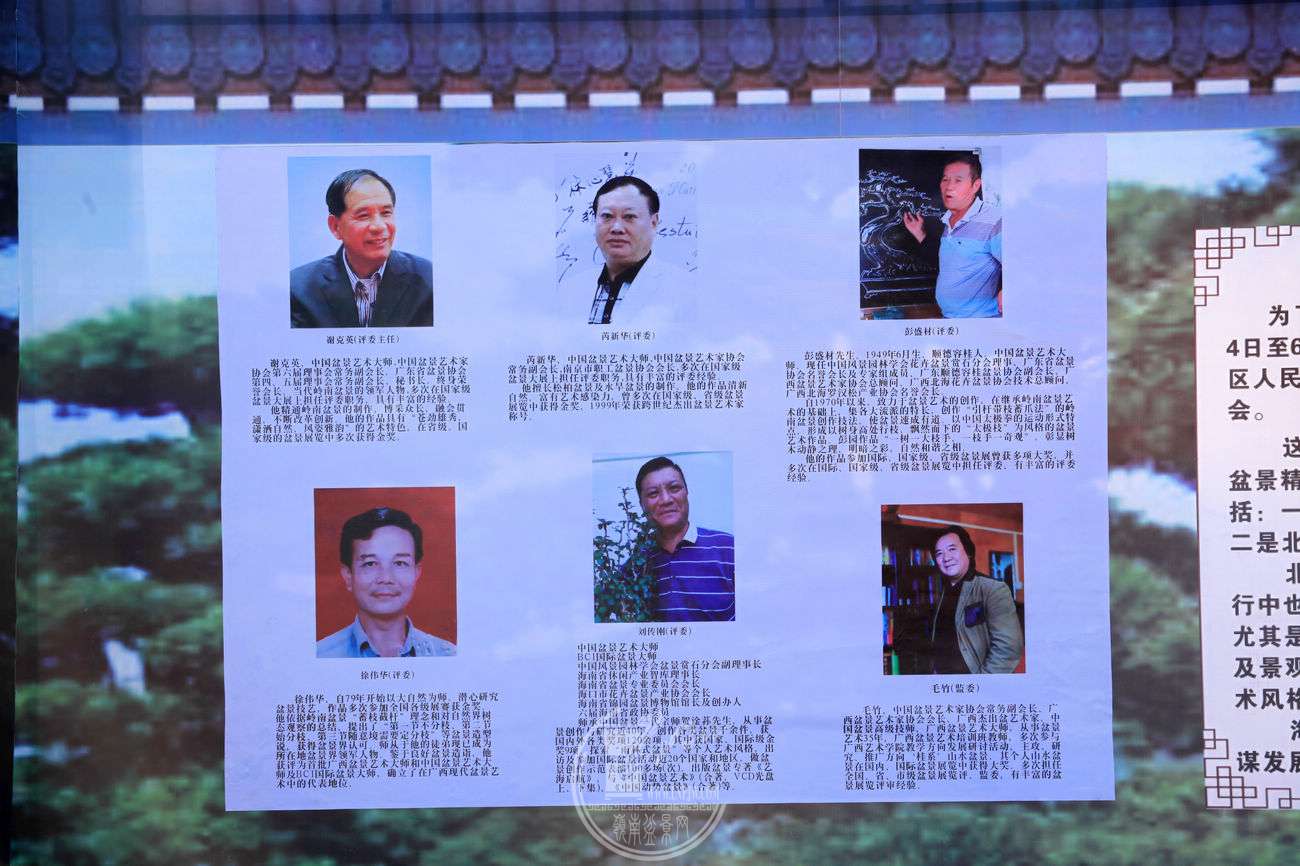 谢克英(评委主任)
谢克英，中国盆景艺术大师,中国盆景艺术家
协会第六届理事会常务副会长、广东省盆景协会
第四、五届理事会常务副会长、秘书长、终身荣
誉会长、当代岭南盆景的领军人物。多次在国家级
盆景大展上担任评委职务，具有丰富的评委经验。
他精通岭南盆景的制作，博采众长，融会贯
通，不断改革创新，他的作品具有“苍劲雄秀，
潇洒自然，风姿雅韵”的艺术特色，在省级、国
家级的盆景展览中多次获得金奖。
芮新华(评委)
芮新华、中国盆景艺术大师,中国盆景艺术家协会
常务副会长,南京市职工盆景协会会长,多次在国家级
盆景大展上担任评委职务,具有丰富的评委经验
他擅长松柏盆景及水旱盆景的制作，他的作品清新
自然，富有艺术感染力，曾多次在国家级、省级盆景
展览中获得金奖，1999年荣获跨世纪杰出盆景艺术家
称号。
彭盛材(评委)
彭盛材先生，1949年6月生，顺德容桂人，中国盆景艺术大
师，现任中国风景园林学会花卉盆景赏石分会理事，广东省盆景
协会名誉会长及专家组成员，广东顺德容桂盆景协会副会长，广
西盆景艺术家协会总顾问，广西北海花卉盆景协会技术总顾问，
广西北海罗汉松产业协会名誉会长
自1970年以来，致力于盆景艺术的创作，在继承岭南盆景艺
术的基础上，集各大流派的特长，创作“引杆带枝蓄爪法”的岭
南盆景创作技法，使盆景速成有道，以中国太极拳的运动形式特
点，形成以树身高处行枝，飘然而下的“太极枝”为风格的盆景
艺术作品，彭园作品“一树一大枝手，一枝手一奇观”，彰显树
木动静之理，明暗之彩，自然和谐之相
他的作品参加国际、国家级、省级盆景展曾获多项大奖，并
多次在国际、国家级、省级盆景展览中担任评委，有丰富的评委
经验。
徐伟华(评委)
徐伟华，自79年开始以大自然为师，潜心研究
盆景技艺，作品多次参加全国各级展赛获金奖。
他依据岭南盆景“蓄枝截杆”理念和对自然界树
态观察的总结，提出了“第一节不分枝，第二节
始分枝，第三节随意境需要定分枝”等盆景造型
说，获得盆景界认可，师从于他的技弟现已成为
所在地盆景界领军人物。鉴于良好盆景造诣，他
获评为首批广西盆景艺术大师和中国盆景艺术大
师及BCI国际盆景大师，确立了在广西现代盆景艺
术中的代表地位。
刘传刚(评委)
中国盆景艺术大师
BCI国际盆景大师
中国风景园林学会盆景赏石分会副理事长
海南省休闲产业智库理事长
海南省盆景专业委员会会长
海口市花卉盆景产业协会会长
海南省锦园盆景博物馆馆长及创办人
六届海南省政协委员
国内外大奖
出
访及参加国际盆景活动近20个国家和地区，做盆
出版盆景专著《艺
(合著，VCD光盘
上、下集)，《中国动势盆景》(合著)等。
毛竹(监委)
毛竹，中国盆景艺术家协会常务副会长，广
西盆景艺术家协会会长，广西杰出盆景艺术家，中
国盆景高级技师，广西盆景艺术大师。从事盆景
艺术研究、广西盆景艺术培训班教师，多次参与
广西艺术学院教学方向发展研讨活动，主攻、研
究、推广方向“桂系”山水盆景，其个人山水盆
景在国内、国际盆景展览中获得大奖，多次担任
全国、省、市级盆景展览评、监委，有丰富的盆
景展览评审经验。
为了
4日至6
区人民
会。
这
盆景精
括：一
二是北
北
行中也
尤其是
及景观
术风格
谋发展
嶺南盆景网